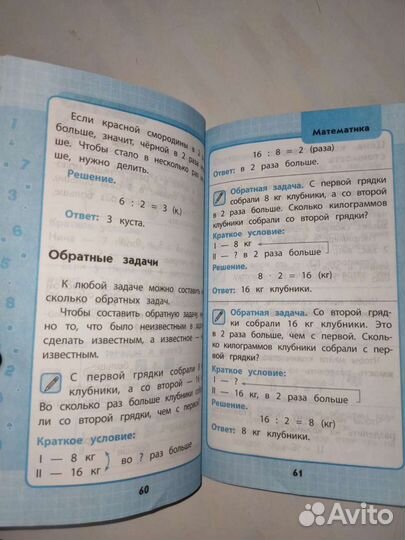 Если красной смородины в 2
больше, значит, чёрной в 2 раза
ше. Чтобы стало в несколько раз
ше, нужно делить.
Решение.
6 : 2 = 3 (к)
Ответ: 3 куста.
Обратные задачи
К любой задаче можно составить
сколько обратных задач.
Чтобы составить обратную задачу,
но то, что было неизвестным в
сделать известным, а известное —
известным.
С первой грядки собрали 8
клубники, а со второй — 16
Во сколько раз больше клубники собрали
со второй грядки, чем с первой
Краткое условие:
I — 8 кг
II — 16 кг
во ? раз больше
60
Математика
16 : 8 = 2 (раза)
Ответ: в 2 раза больше.
Обратная задача. С первой грядки
собрали 8 кг клубники, а со второй
в 2 раза больше. Сколько килограммов
клубники собрали со второй грядки?
Краткое условие:
I — 8 кг
II — ? в 2 раза больше
Решение.
8 · 2 = 16 (кг)
Ответ: 16 кг клубники.
Обратная задача. Со второй гряд-
ки собрали 16 кг клубники. Это
в 2 раза больше, чем с первой. Сколько
килограммов клубники собрали с пер-
вой грядки?
Краткое условие:
I — ?
II — 16 кг, в 2 раза больше
Решение.
16 : 2 = 8 (кг)
Ответ: 8 кг клубники.
61
Avito